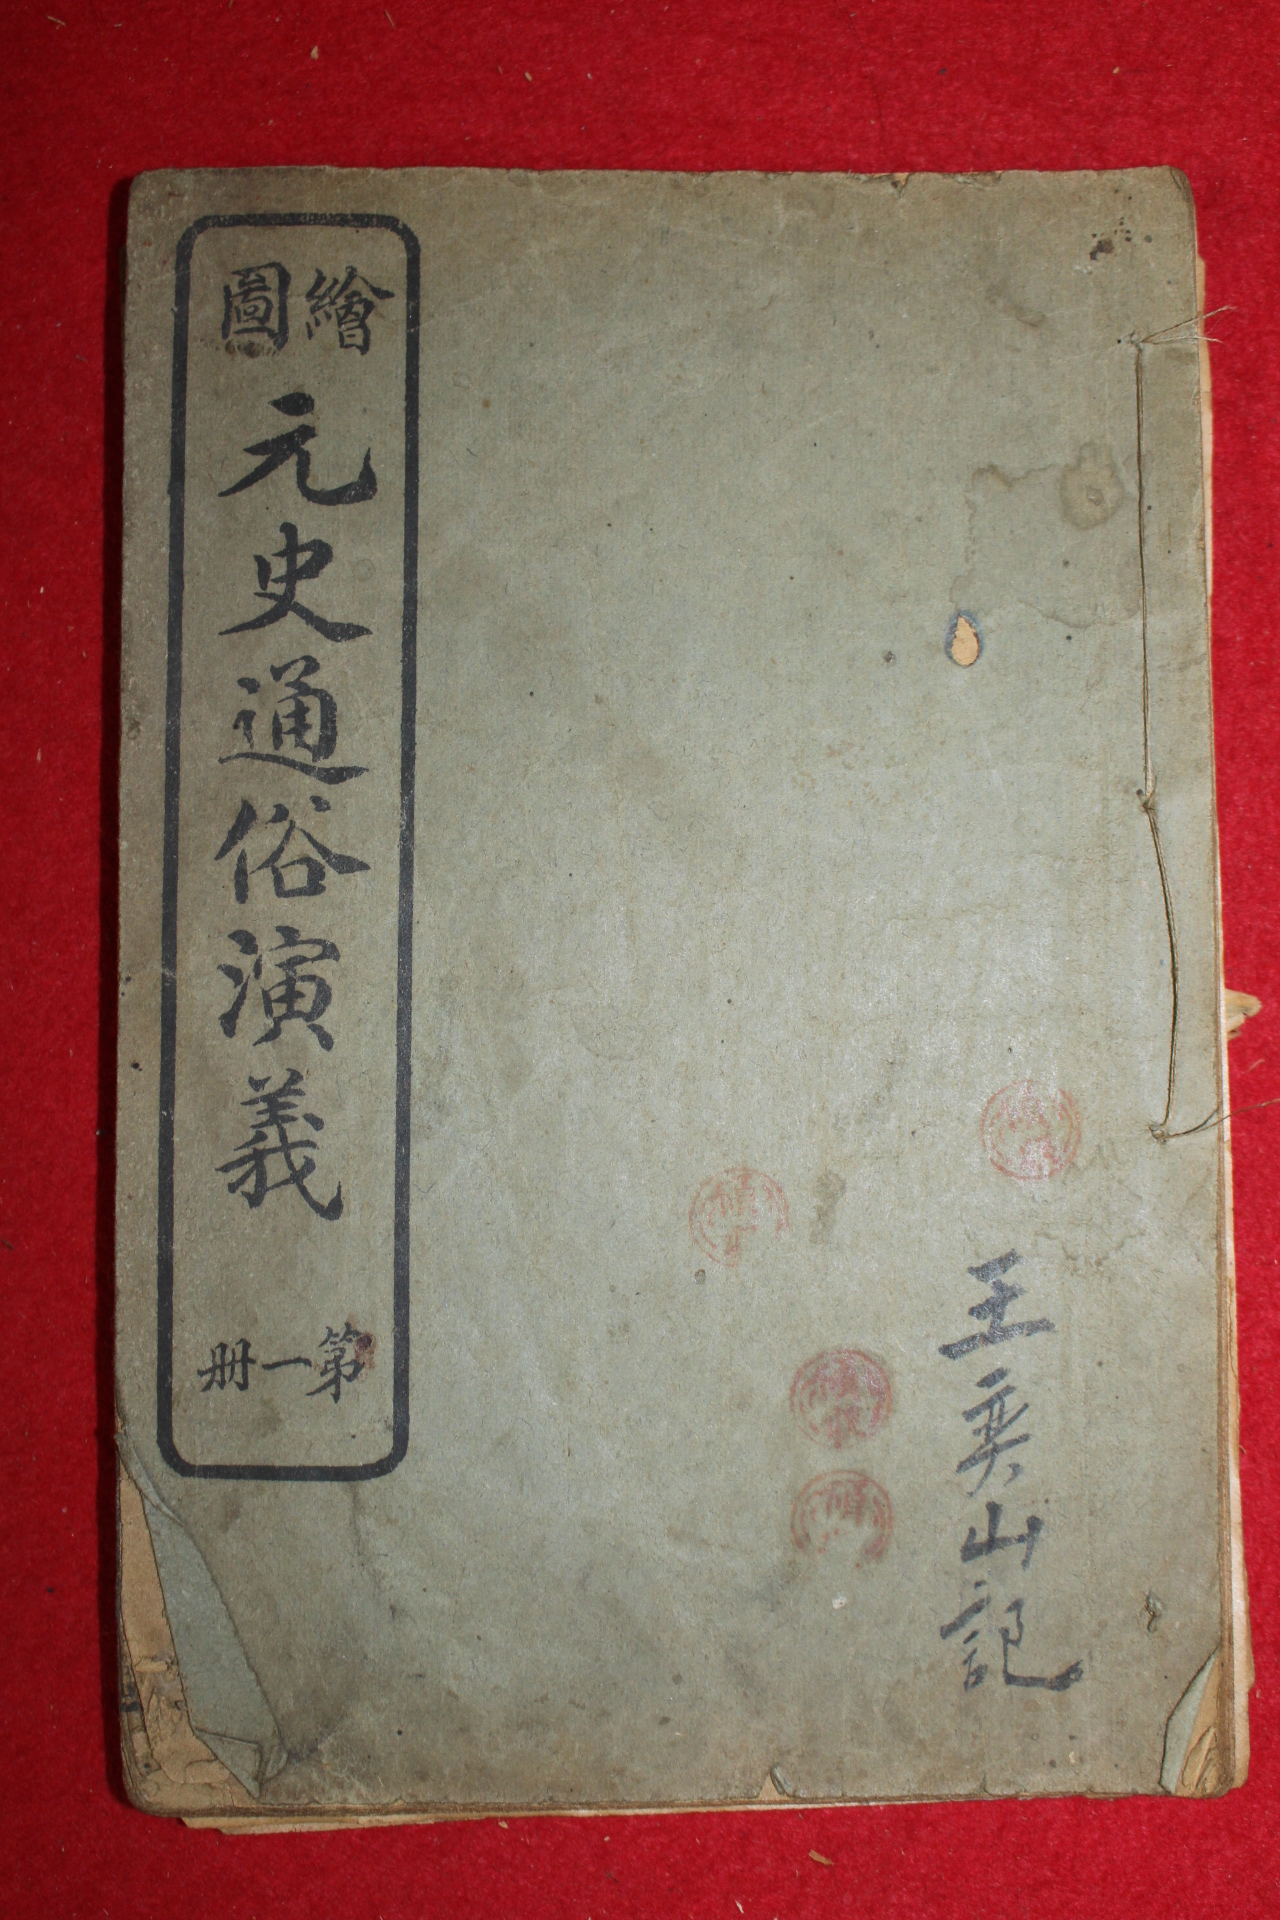 繪圖
元史通俗演義
第一冊
王奕山記